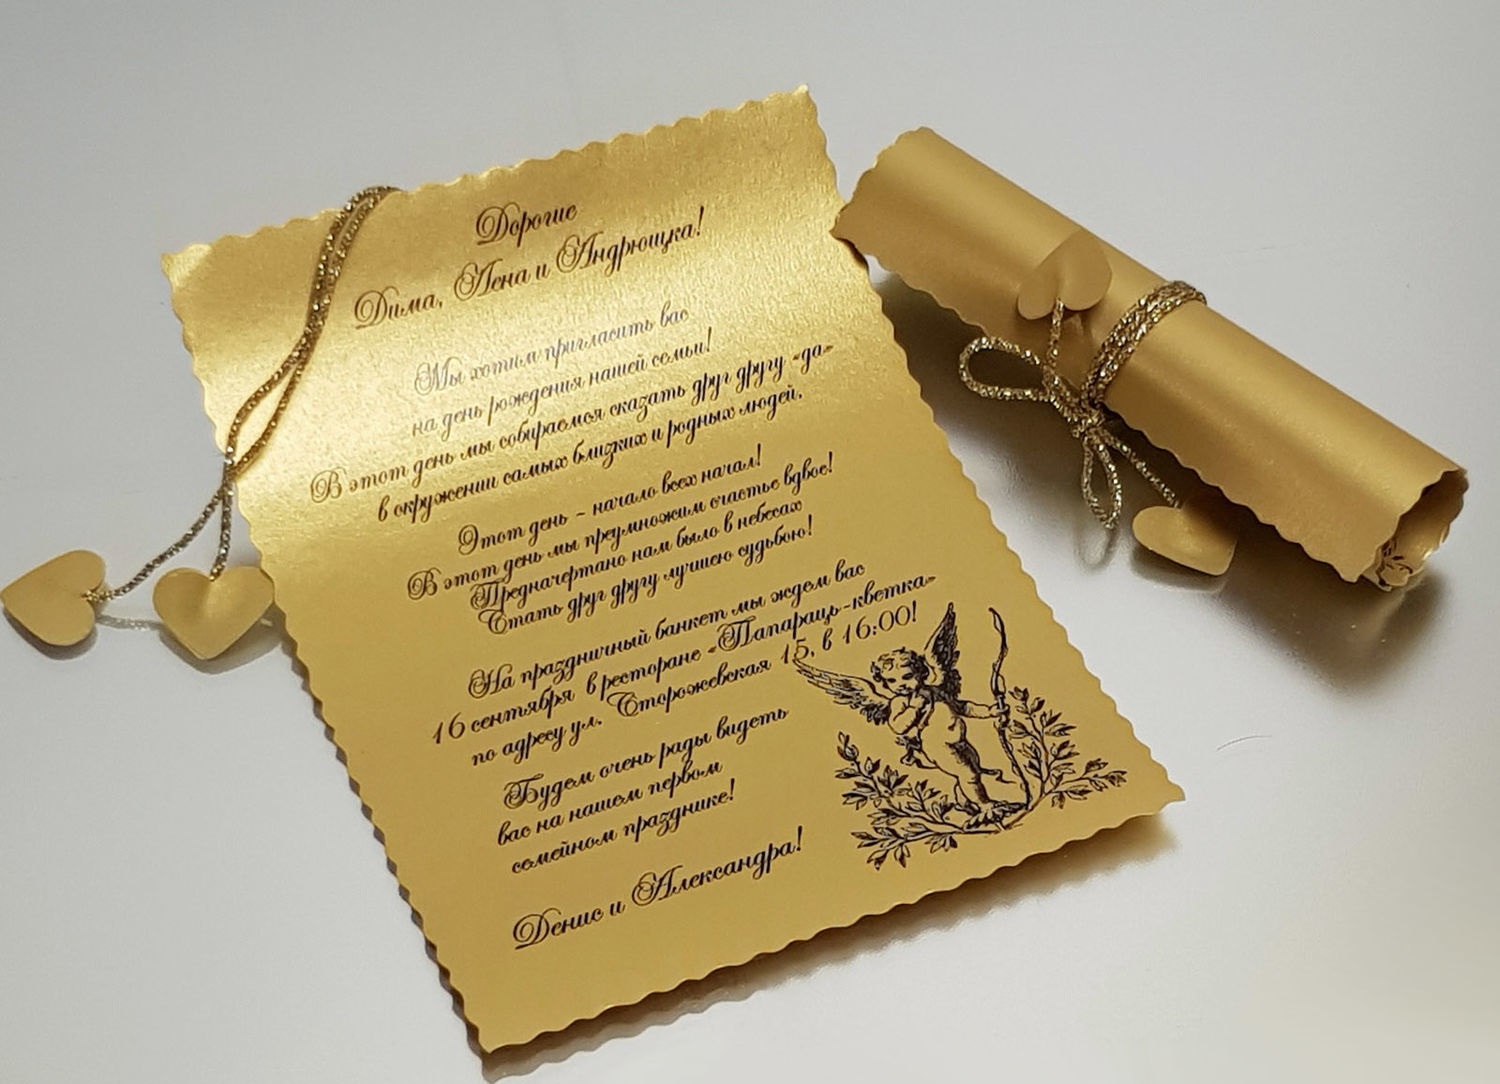 Дорогие
Дима, Лена и Андрюшка!
Мы хотим пригласить вас
на день рождения нашей семьи!
В этот день мы собираемся сказать друг другу «да»
в окружении самых близких и родных людей.
Этот день - начало всех начал!
В этот день мы преумножим счастье вдвое!
Предначертано нам было в небесах
Стать друг другу лучшею судьбою!
На праздничный банкет мы ждем вас
16 сентября в ресторане «Папараць-кветка»
по адресу ул. Сторожевская 15, в 16:00!
Будем очень рады видеть
вас на нашем первом
семейном празднике!
Денис и Александра!